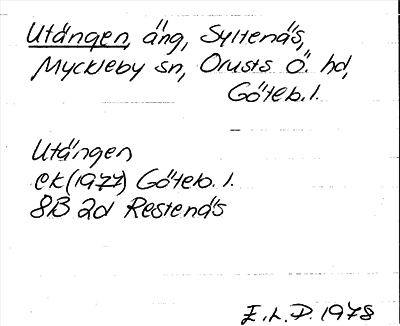 Utängen, äng, Syltenäs,
Myckleby sn, Orusts Ö. hd,
Göteb. l.
Utängen
EK (1977) Göteb. l.
8B 2d Restenäs
E. L. D. 1978